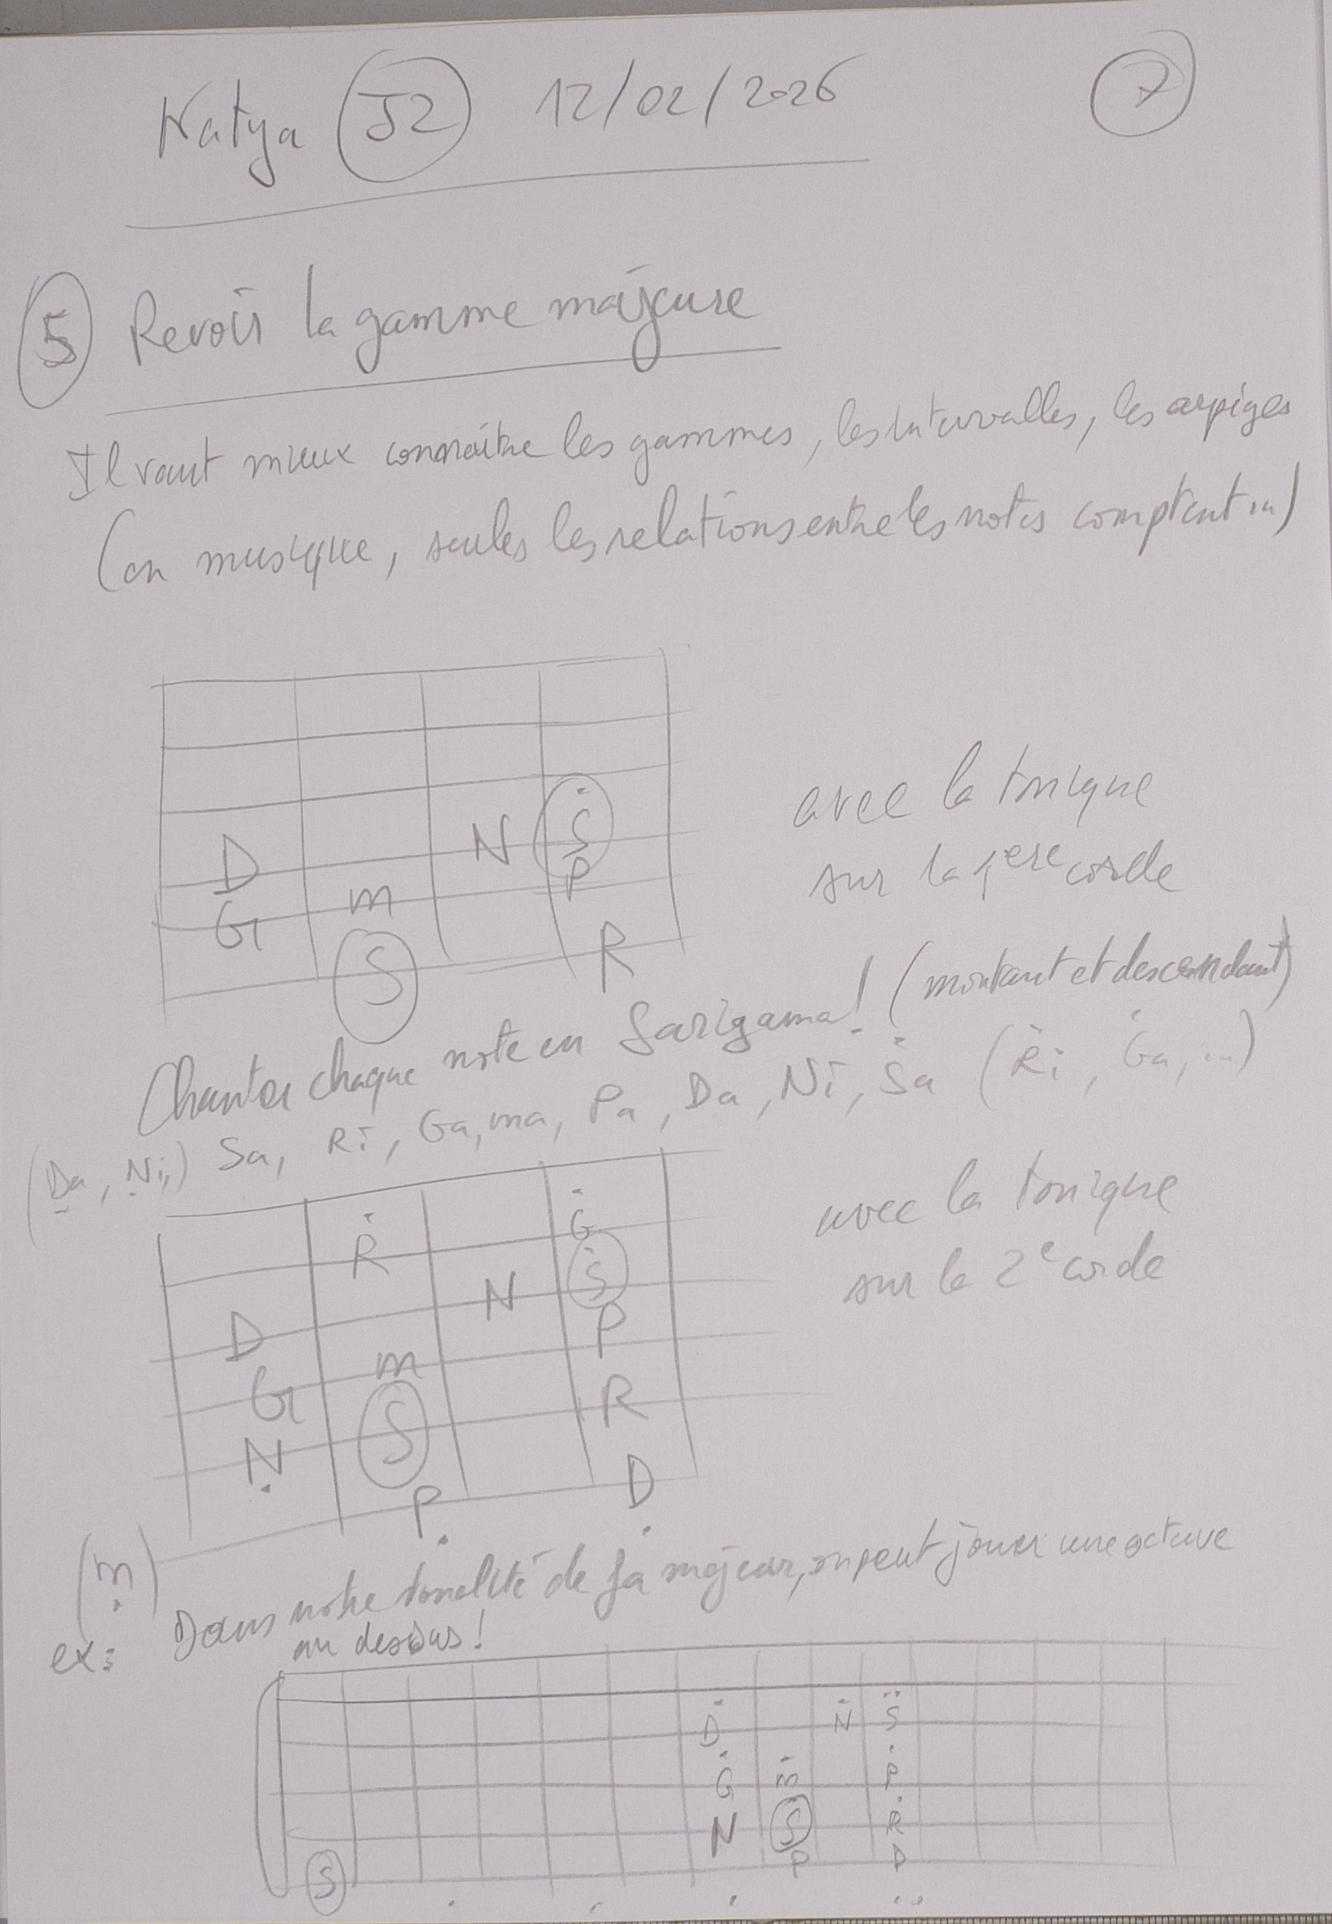 Natya J2 12/02/2026 7
5 Revoir la gamme majeure
Il vaut mieux connaître les gammes, les intervalles, les arpèges
(en musique, seules les relations entre les notes comptent...)
D N Ṡ
P
G m
S R
avec la tonique
sur la 1ere corde
Chanter chaque note en Sarigama! (montant et descendant)
(Ḍa, Ṇi,) Sa, Ri, Ga, ma, Pa, Da, Ni, Ṡa (Ṙi, Ġa, ...)
Ṙ Ġ
N Ṡ
D P
G m R
Ṇ S
P̣ Ḍ
(ṃ)
avec la tonique
sur la 2e corde
ex: Dans notre tonalité de fa majeur, on peut jouer une octave
au dessus!
Ḋ Ṅ S̈
Ġ ṁ Ṗ
N Ṡ Ṙ
S P D